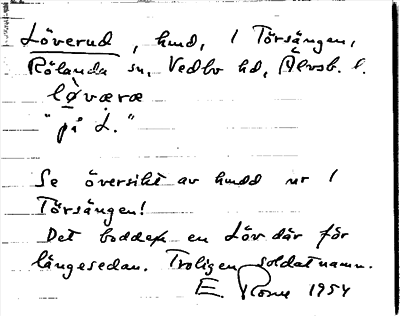 Löverud, hmd, 1 Törsängen,
Rölanda sn, Vedbo hd, Älvsb. l.
lø̀væræ
"på L."
Se översikt av hmdd nr 1
Törsängen!
Det bodde en Löv där för
längesedan. Troligen soldatnamn.
E. 1954